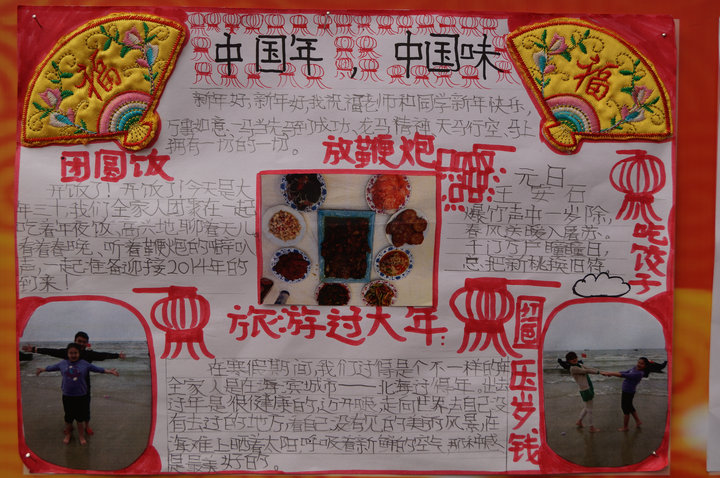 中国年，中国味
福
福
新年好,新年好,我祝福老师和同学新年快乐,
万事如意、马当先马到成功、龙马精神 天马行空、马上
拥有一切的一切。
团圆饭
开饭了！开饭了！今天是大
年三十,我们全家人团聚在一起
吃着年夜饭、高兴地聊着天儿、
看着春晚、听着鞭炮的噼啪
声，一起准备迎接2014年的
到来！
放鞭炮
元日
王安石
爆竹声中一岁除,
春风送暖入屠苏。
千门万户曈曈日,
总把新桃换旧符
吃饺子
旅游过大年
在寒假期间,我们过得是个不一样的年
全家人是在海滨城市——北海过得年。
过年是很健康的,边开眼,走向世界去自己没
有去过的地方,看自己没有见的美的风景,在
海滩上晒着太阳,呼吸着新鲜的空气,那种感
是最美好的。
红包
压岁钱